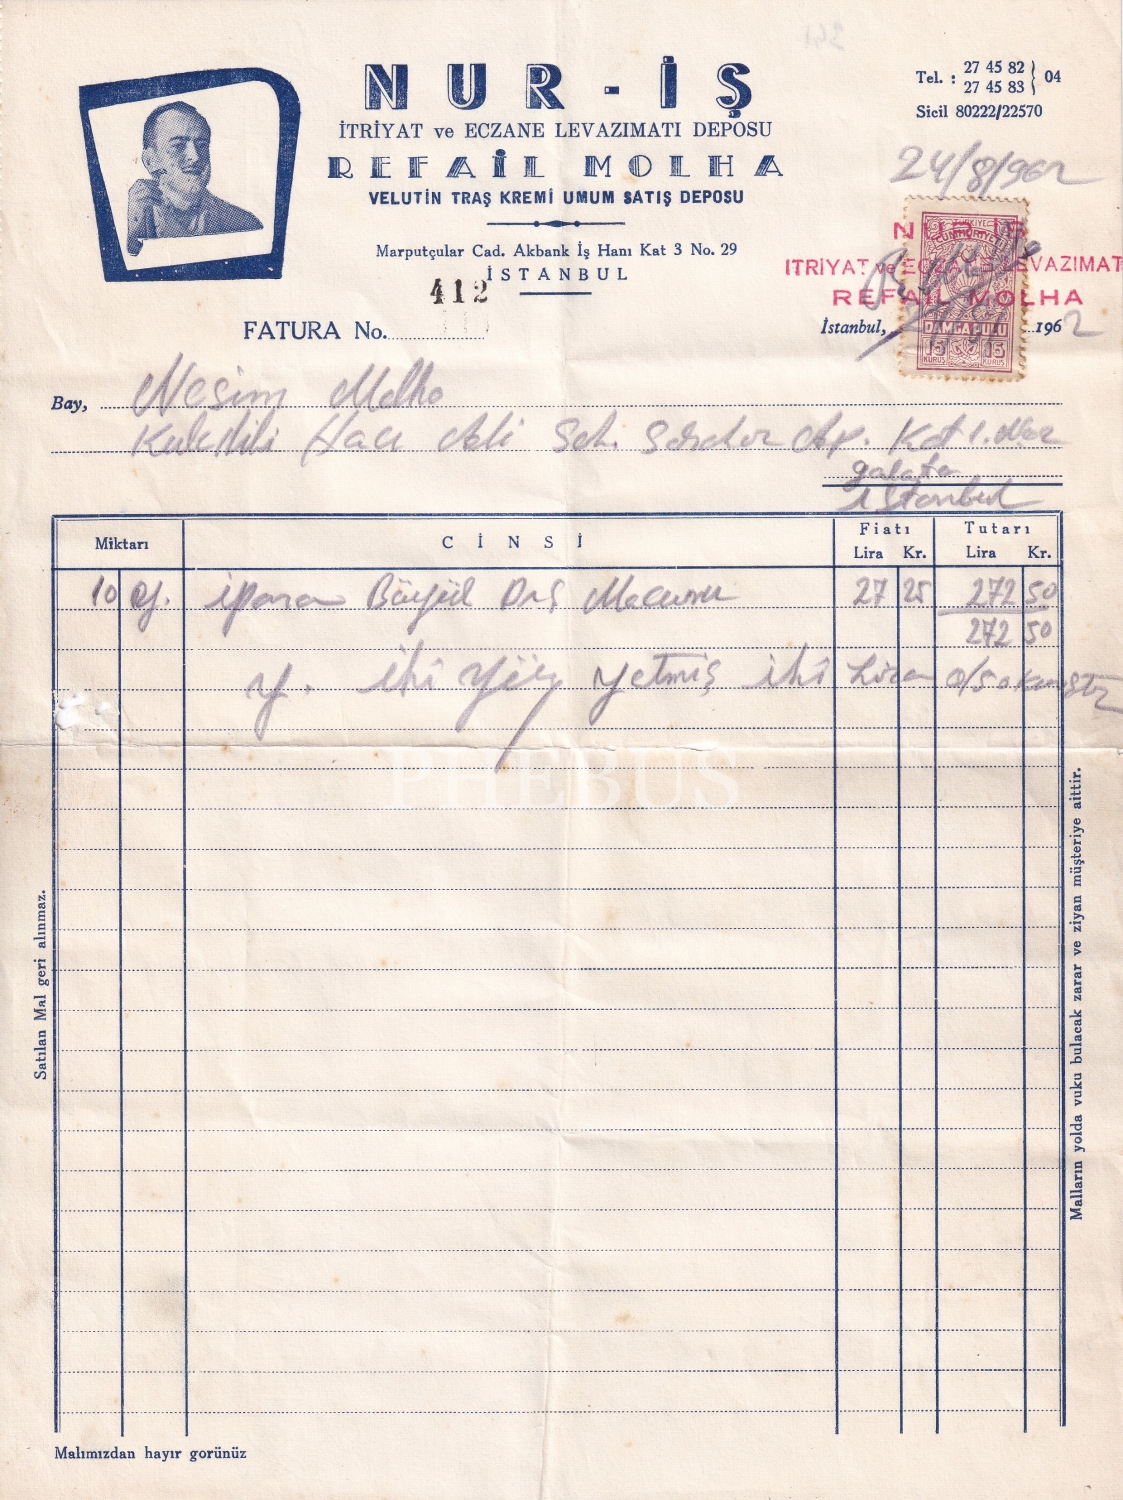 NUR-İŞ
İTRİYAT ve ECZANE LEVAZIMATI DEPOSU
REFAİL MOLHA
VELUTİN TRAŞ KREMİ UMUM SATIŞ DEPOSU
Marputçular Cad. Akbank İş Hanı Kat 3 No. 29
İSTANBUL
Tel. : 27 45 82
27 45 83
04
Sicil 80222/22570
24/8/962
NUR İŞ
ITRİYAT ve ECZANE LEVAZIMAT
REFAİL MOLHA
TÜRKİYE
CUMHURİYETİ
DAMGA PULU
15 15
KURUŞ KURUŞ
412
FATURA No.
İstanbul, 1962
Bay, Nesim Molho
Kuledibi Hacı Ali Sok. Ap. Kat 1.
galata
istanbul
Miktarı CİNSİ Fiatı Tutarı
Lira Kr. Lira Kr.
10 ipana Büyük Diş Macunu 27 25 272 50
272 50
Y. iki Yüz yetmiş iki Lira o/50 kuruştur
PHEBUS
Satılan Mal geri alınmaz.
Malların yolda vuku bulacak zarar ve ziyan müşteriye aittir.
Malımızdan hayır gorünüz